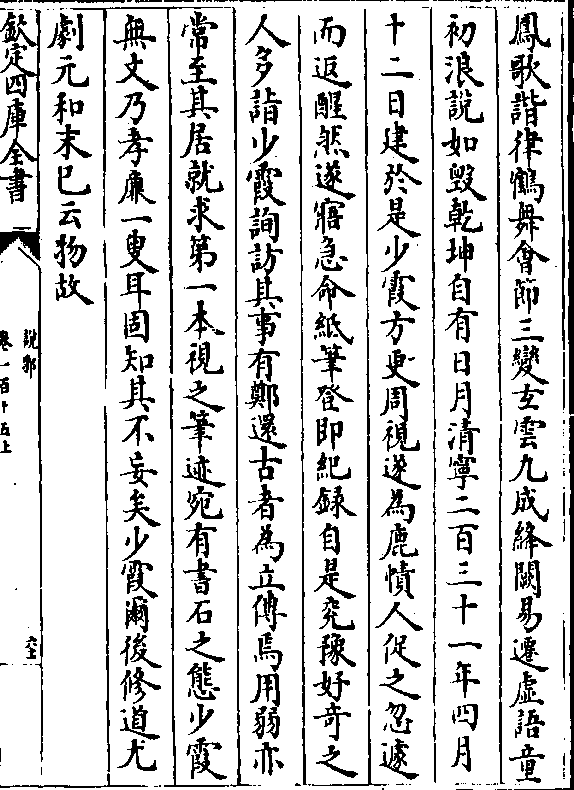 鳳歌諧律鶴舞會節三變𤣥雲九成絳闕易遷虛語童
初浪說如毀乾坤自有日月清寧二百三十一年四月
十二日建於是少霞方更周視遂為鹿幘人促之忽遽
而返醒然遂寤急命紙筆登即紀録自是兖豫好奇之
人多詣少霞詢訪其事有鄭還古者為立傳焉用弱亦
常至其居就求第一本視之筆迹宛有書石之態少霞
無文乃孝廉一叟耳固知其不妄矣少霞爾後修道尤
劇元和末已云物故
欽定四庫全書
說郛
卷一百十五上
六十二